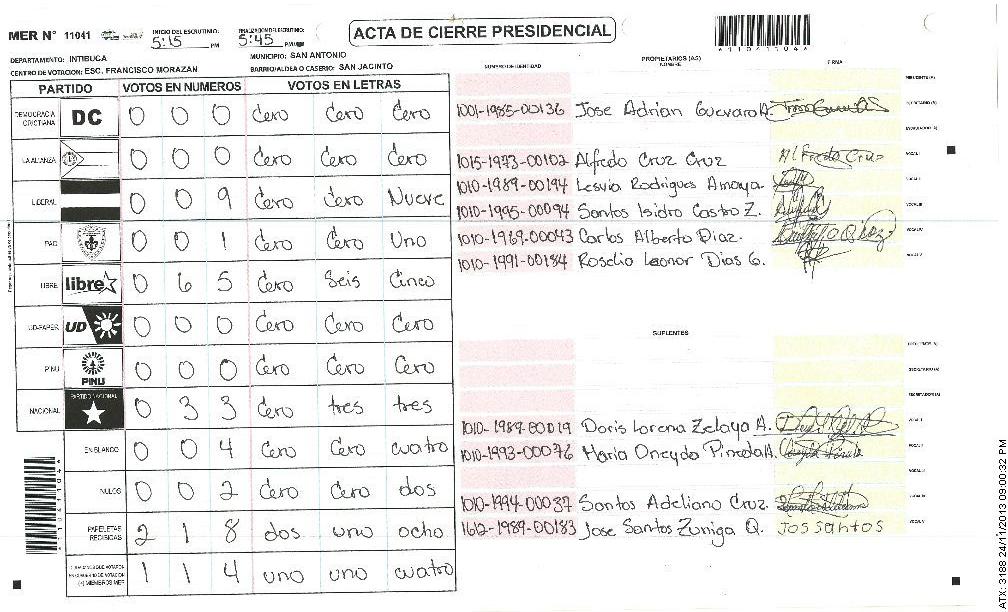 MER N° 11041
INICIO DEL ESCRUTINIO: 5:15 PM
FINALIZACION DEL ESCRUTINIO: 5:45 PM
ACTA DE CIERRE PRESIDENCIAL
A110411044
DEPARTAMENTO: INTIBUCA
MUNICIPIO: SAN ANTONIO
CENTRO DE VOTACION: ESC. FRANCISCO MORAZAN
BARRIO/ALDEA O CASERIO: SAN JACINTO
PARTIDO VOTOS EN NUMEROS VOTOS EN LETRAS
DEMOCRACIA CRISTIANA DC 0 0 0 Cero Cero Cero
LA ALIANZA 0 0 0 Cero Cero Cero
LIBERAL 0 0 9 Cero Cero Nueve
PAC 0 0 1 Cero Cero Uno
LIBRE libre 0 6 5 Cero Seis Cinco
UD-FAPER UD 0 0 0 Cero Cero Cero
PINU PINU 0 0 0 Cero Cero Cero
NACIONAL PARTIDO NACIONAL 0 3 3 Cero tres tres
EN BLANCO 0 0 4 Cero Cero cuatro
NULOS 0 0 2 Cero Cero dos
PAPELETAS RECIBIDAS 2 1 8 dos uno ocho
CIUDADANOS QUE VOTARON EN CUADERNO DE VOTACION (+) MIEMBROS MER 1 1 4 uno uno cuatro
NUMERO DE IDENTIDAD
PROPIETARIOS (AS)
NOMBRE
FIRMA
PRESIDENTE (A)
1001-1985-00136 Jose Adrian Guevara A. SECRETARIO (A)
ESCRUTADOR (A)
1015-1973-00102 Alfredo Cruz Cruz Alfredo Cruz VOCAL I
1010-1989-00194 Lesvia Rodrigues Amaya. VOCAL II
1010-1995-00094 Santos Isidro Castro Z. VOCAL III
1010-1969-00043 Carlos Alberto Diaz. VOCAL IV
1010-1991-00184 Roselio Leonor Dias G. VOCAL V
SUPLENTES
PRESIDENTE (A)
SECRETARIO (A)
ESCRUTADOR (A)
1010-1989-00019 Doris Lorena Zelaya A. VOCAL I
1010-1993-00076 Maria Oneyda Pineda A. VOCAL II
VOCAL III
1010-1994-00037 Santos Adeliano Cruz. VOCAL IV
1612-1989-00183 Jose Santos Zuniga Q. Jos santos VOCAL V
A110411044
ATX: 3188 24/11/2013 09:00:32 PM